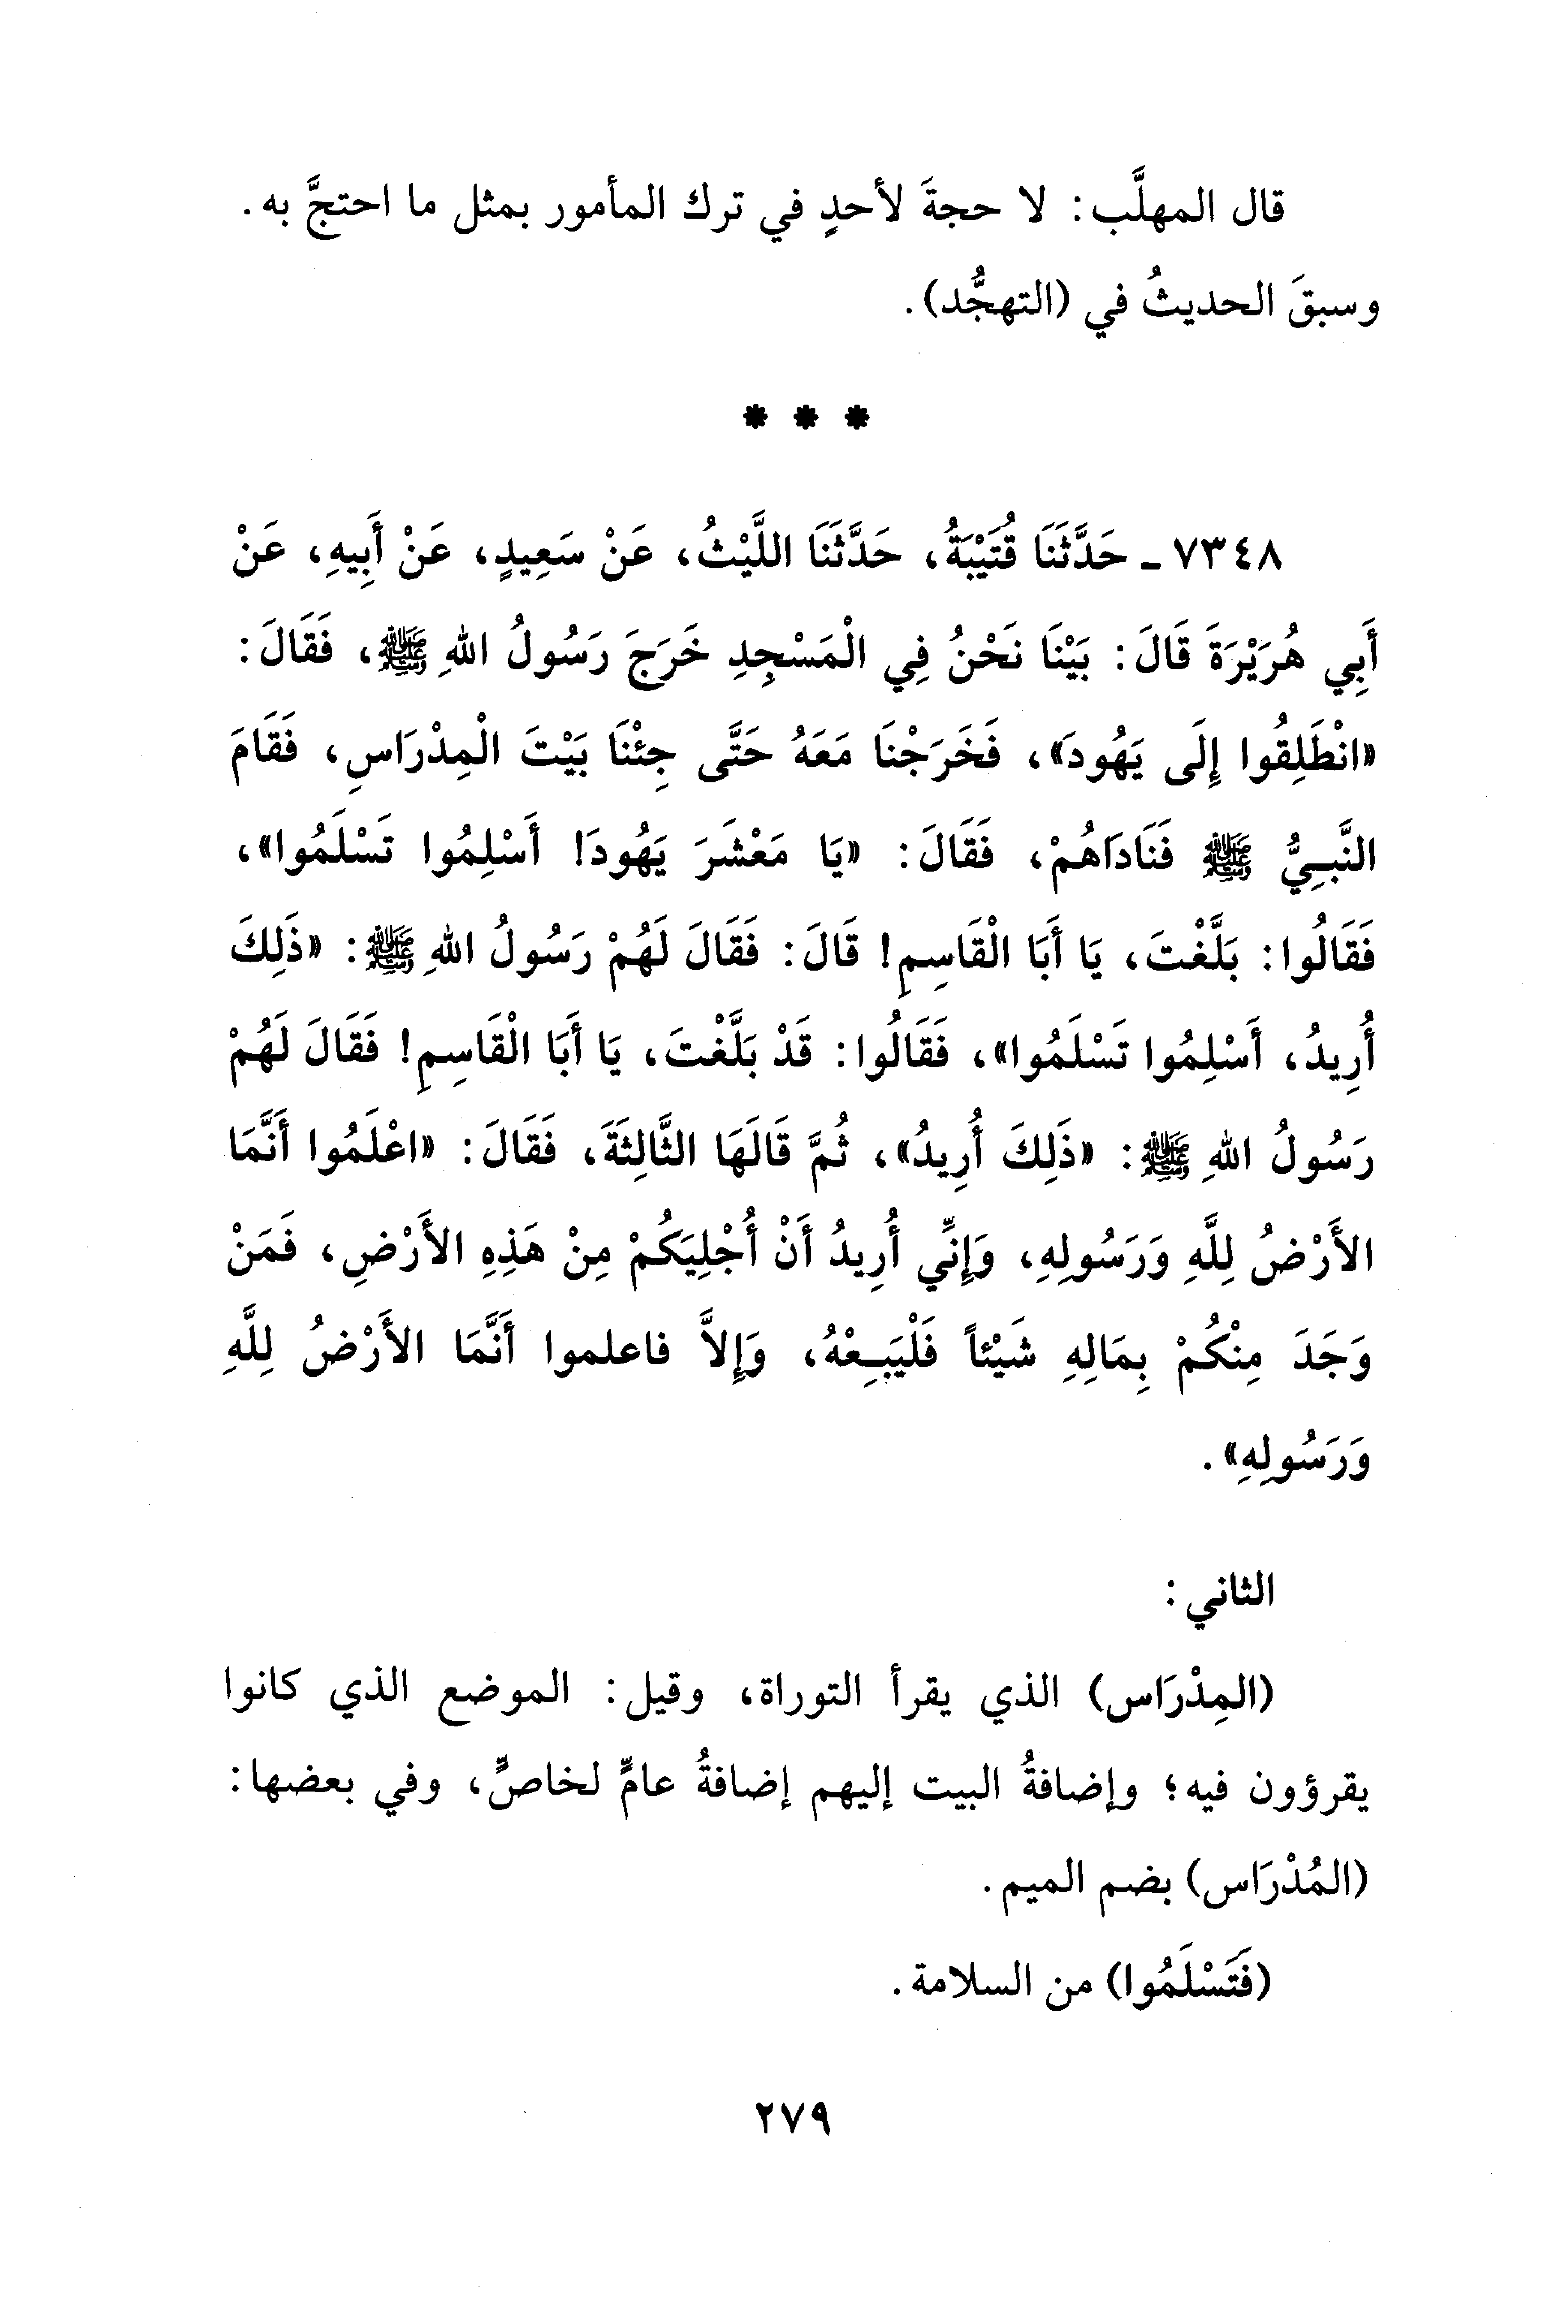 قال المهلَّب: لا حجةَ لأحدٍ في ترك المأمور بمثل ما احتجَّ به.
وسبقَ الحديثُ في (التهجُّد).
* * *
٧٣٤٨ ـ حَدَّثَنَا قُتَيْبَةُ، حَدَّثَنَا اللَّيْثُ، عَنْ سَعِيدٍ، عَنْ أَبِيهِ، عَنْ
أَبِي هُرَيْرَةَ قَالَ: بَيْنَا نَحْنُ فِي الْمَسْجِدِ خَرَجَ رَسُولُ اللهِ ﷺ، فَقَالَ:
«انْطَلِقُوا إِلَى يَهُودَ»، فَخَرَجْنَا مَعَهُ حَتَّى جِئْنَا بَيْتَ الْمِدْرَاسِ، فَقَامَ
النَّبِيُّ ﷺ فَنَادَاهُمْ، فَقَالَ: «يَا مَعْشَرَ يَهُودَ! أَسْلِمُوا تَسْلَمُوا»،
فَقَالُوا: بَلَّغْتَ، يَا أَبَا الْقَاسِمِ! قَالَ: فَقَالَ لَهُمْ رَسُولُ اللهِ ﷺ: «ذَلِكَ
أُرِيدُ، أَسْلِمُوا تَسْلَمُوا»، فَقَالُوا: قَدْ بَلَّغْتَ، يَا أَبَا الْقَاسِمِ! فَقَالَ لَهُمْ
رَسُولُ اللهِ ﷺ: «ذَلِكَ أُرِيدُ»، ثُمَّ قَالَهَا الثَّالِثَةَ، فَقَالَ: «اعْلَمُوا أَنَّمَا
الأَرْضُ لِلَّهِ وَرَسُولِهِ، وَإِنِّي أُرِيدُ أَنْ أُجْلِيَكُمْ مِنْ هَذِهِ الأَرْضِ، فَمَنْ
وَجَدَ مِنْكُمْ بِمَالِهِ شَيْئاً فَلْيَبِعْهُ، وَإِلاَّ فاعلموا أَنَّمَا الأَرْضُ لِلَّهِ
وَرَسُولِهِ».
الثاني:
(المِدْرَاس) الذي يقرأ التوراة، وقيل: الموضع الذي كانوا
يقرؤون فيه؛ وإضافةُ البيت إليهم إضافةُ عامٍّ لخاصٍّ، وفي بعضها:
(المُدْرَاس) بضم الميم.
(فَتَسْلَمُوا) من السلامة.
٢٧٩